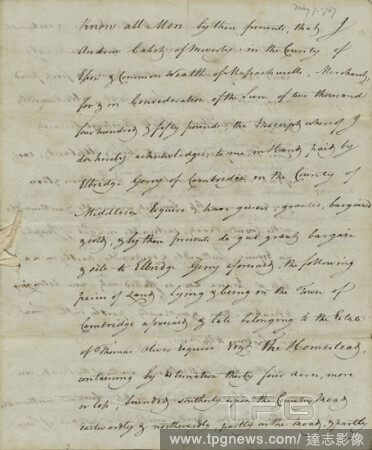 May 7. 1787
Know all Men by these presents, that I
Andrew Cabot of Beverly in the County of
Essex & Common Wealth of Massachusetts, Merchant,
for & in Consideration of the Sum of two thousand
four hundred & fifty pounds, the Receipt whereof I
do hereby acknowledge, to me, in Hand paid by
Elbridge Gerry of Cambridge in the County of
Middlesex Esquire, have given, granted, bargained
& sold, & by these presents do give grant bargain
& sell to Elbridge Gerry aforesaid, the following
pieces of Land, lying & being in the Town of
Cambridge aforesaid, & late belonging to the Estate
of Thomas Oliver Esquire Vizt. The Homestead,
containing by Estimation thirty four acres, more
or less, bounded southerly upon the County Road
eastwardly & northwardly, partly on the Road, & partly
TPG
www.tpgnews.com / 達志影像